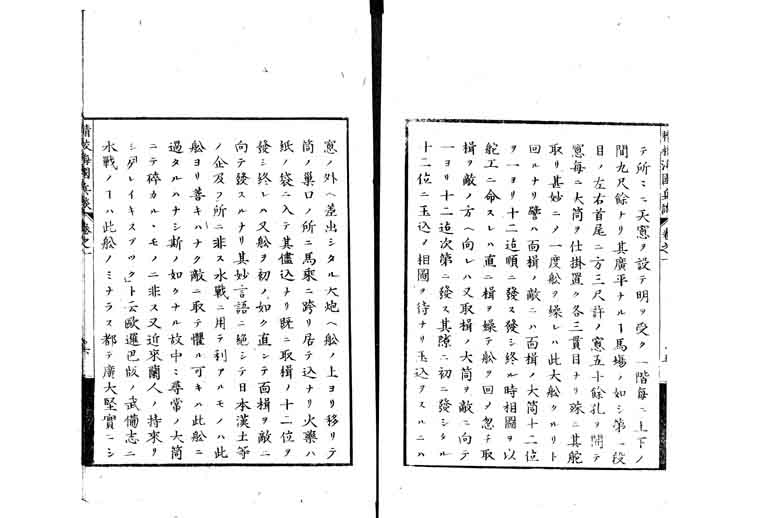 テ所ミニ天窓ヲ設テ明ヲ受ク一階每ニ上下ノ
間九尺餘ナリ其廣平ナルヿ馬場ノ如シ第一段
目ノ左右首尾ニ方三尺許ノ窓五十餘孔ヲ開テ
窓每ニ大筒ヲ仕掛置ク各三貫目ナリ殊ニ其舵
取リ甚妙ニノ一度舵ヲ繰レハ此大舩クルリト
回ルナリ譬ハ面楫ノ敵ニハ面楫ノ大筒十二位
ヲ一ヨリ十二迄順ニ發ス發シ終ル時相圖ヲ以
舵工ニ命スレハ直ニ楫ヲ繰テ舩ヲ回メ忽チ取
楫ヲ敵ノ方ヘ向レハ又取楫ノ大筒ヲ敵ニ向テ
一ヨリ十二迄次第ニ發ス其隙ニ初ニ發シタル
十二位ニ玉込ノ相圖ヲ待ナリ玉込ヲスルニハ
精校海國兵談 卷之一
窓ノ外ヘ差出シタル大炮ヘ舩ノ上ヨリ移リテ
筒ノ巢口ノ所ニ馬乘ニ跨リ居テ込ナリ火藥ハ
紙ノ袋ニ入テ其儘込ナリ既ニ取楫ノ十二位ヲ
發シ終レハ又舩ヲ初ノ如ク直シテ面楫ヲ敵ニ
向テ發スルナリ其妙言語ニ絕シテ日本漢土等
ノ企及フ所ニ非ス水戰ニ用テ利アルモノハ此
舩ヨリ善キハナク敵ニ取テ懼ル可キハ此舩ニ
過タルハナシ斯ノ如クナル故中ミ尋常ノ大筒
ニテ碎カル丶モノニ非ス又近來蘭人ノ持來リ
シゲレイキスブックト云歐邏巴版ノ武備志ニ
水戰ノヿハ此舩ノミナラス都テ廣大堅實ニシ
精校海國兵談 卷之一